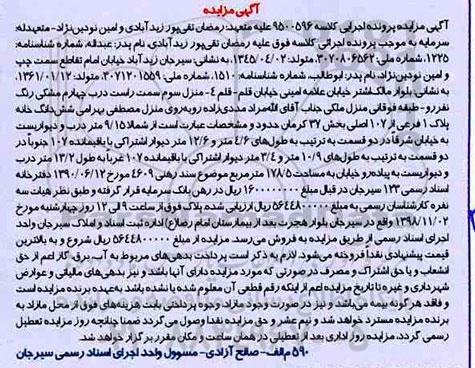 آگهی مزایده
آگهی مزایده پرونده اجرایی کلاسه ۹۵۰۰۵۹۶ علیه متعهد: رمضان تقی‌پور زیدآبادی و امین نودین‌نژاد- متعهدله:
سرمایه به موجب پرونده اجرائی کلاسه فوق علیه رمضان تقی‌پور زیدآبادی، نام پدر: عبداله، شماره شناسنامه:
۱۲۲۵، شماره ملی: ۳۰۷۰۸۰۶۵۶۲، متولد: ۱۳۴۵/۰۴/۰۲ به نشانی: سیرجان زیدآباد خیابان امام تقاطع سمت چپ
و امین نودین‌نژاد، نام پدر: ابوطالب، شماره شناسنامه: ۱۵۱۰، شماره ملی: ۳۰۷۱۲۰۱۵۵۹، متولد: ۱۳۶۱/۰۱/۱۲
به نشانی بلوار مالک‌اشتر خیابان علامه امینی خیابان قلم- قلم ۴- منزل سوم سمت راست درب چهارم مشکی رنگ
نفررو- طبقه فوقانی منزل ملکی جناب آقای اله‌مراد مددی‌زاده روبه‌روی منزل مصطفی بهرامی شش‌دانگ خانه
پلاک ۱ فرعی از ۱۰۷ اصلی بخش ۳۷ کرمان حدود و مشخصات عبارت است از شمالا ۹/۱۵ متر درب و دیواریست
به خیابان شرقا در دو قسمت به ترتیب به طول‌های ۴/۶ متر و ۱۲/۶ متر دیوار اشتراکی با باقیمانده ۱۰۷ جنوباً در
دو قسمت به ترتیب به طول‌های ۱۰/۹ متر و ۳/۴ متر دیوار اشتراکی با باقیمانده ۱۰۷ غرباً به طول ۱۳/۲ متر درب
و دیواریست به پیاده‌رو خیابان به مساحت ۱۷۸/۵ متر مربع موضوع سند رهنی ۴۶۰۹ مورخ ۱۳۹۰/۰۶/۱۲ دفترخانه
اسناد رسمی ۱۲۳ سیرجان در قبال مبلغ ۱۶۰۰۰۰۰۰۰۰ ریال در رهن بانک سرمایه قرار گرفته و طبق نظر هیات سه
نفره کارشناسان رسمی به مبلغ ۵۶۴۴۸۰۰۰۰۰ ریال ارزیابی شده. پلاک فوق از ساعت ۹ الی ۱۲ روز چهارشنبه مورخ
۱۳۹۸/۱۱/۰۲ واقع در سیرجان بلوار هجرت بعد از بیمارستان امام رضا(ع) اداره ثبت اسناد و املاک سیرجان واحد
اجرای اسناد رسمی از طریق مزایده به فروش می‌رسد. مزایده از مبلغ ۵۶۴۴۸۰۰۰۰۰ ریال شروع و به بالاترین
قیمت پیشنهادی نقداً فروخته می‌شود. لازم به ذکر است پرداخت بدهی‌های مربوط به آب، برق، گاز اعم از حق
انشعاب و یا حق اشتراک و مصرف در صورتی که مورد مزایده دارای آنها باشد و نیز بدهی‌های مالیاتی و عوارض
شهرداری و غیره تا تاریخ مزایده اعم از اینکه رقم قطعی آن معلوم شده یا نشده باشد به‌عهده برنده مزایده است
و فاقد هر گونه بیمه می‌باشد و نیز در صورت وجود مازاد، وجوه پرداختی بابت هزینه‌های فوق از محل مازاد به
برنده مزایده مسترد خواهد شد و نیم عشر و حق مزایده نقدا وصول می‌گردد ضمنا چنانچه روز مزایده تعطیل
رسمی گردد، مزایده روز اداری بعد از تعطیلی در همان ساعت و مکان مقرر برگزار خواهد شد.
۵۹۰ م‌الف- صالح آزادی- مسوول واحد اجرای اسناد رسمی سیرجان